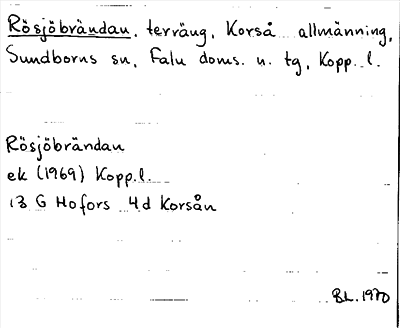 Rösjöbrändan, terräng, Korså allmänning,
Sundborns sn, Falu doms. n. tg, Kopp. l.
Rösjöbrändan
ek (1969) Kopp.l.
13 G Hofors 4d Korsån
BL. 1970